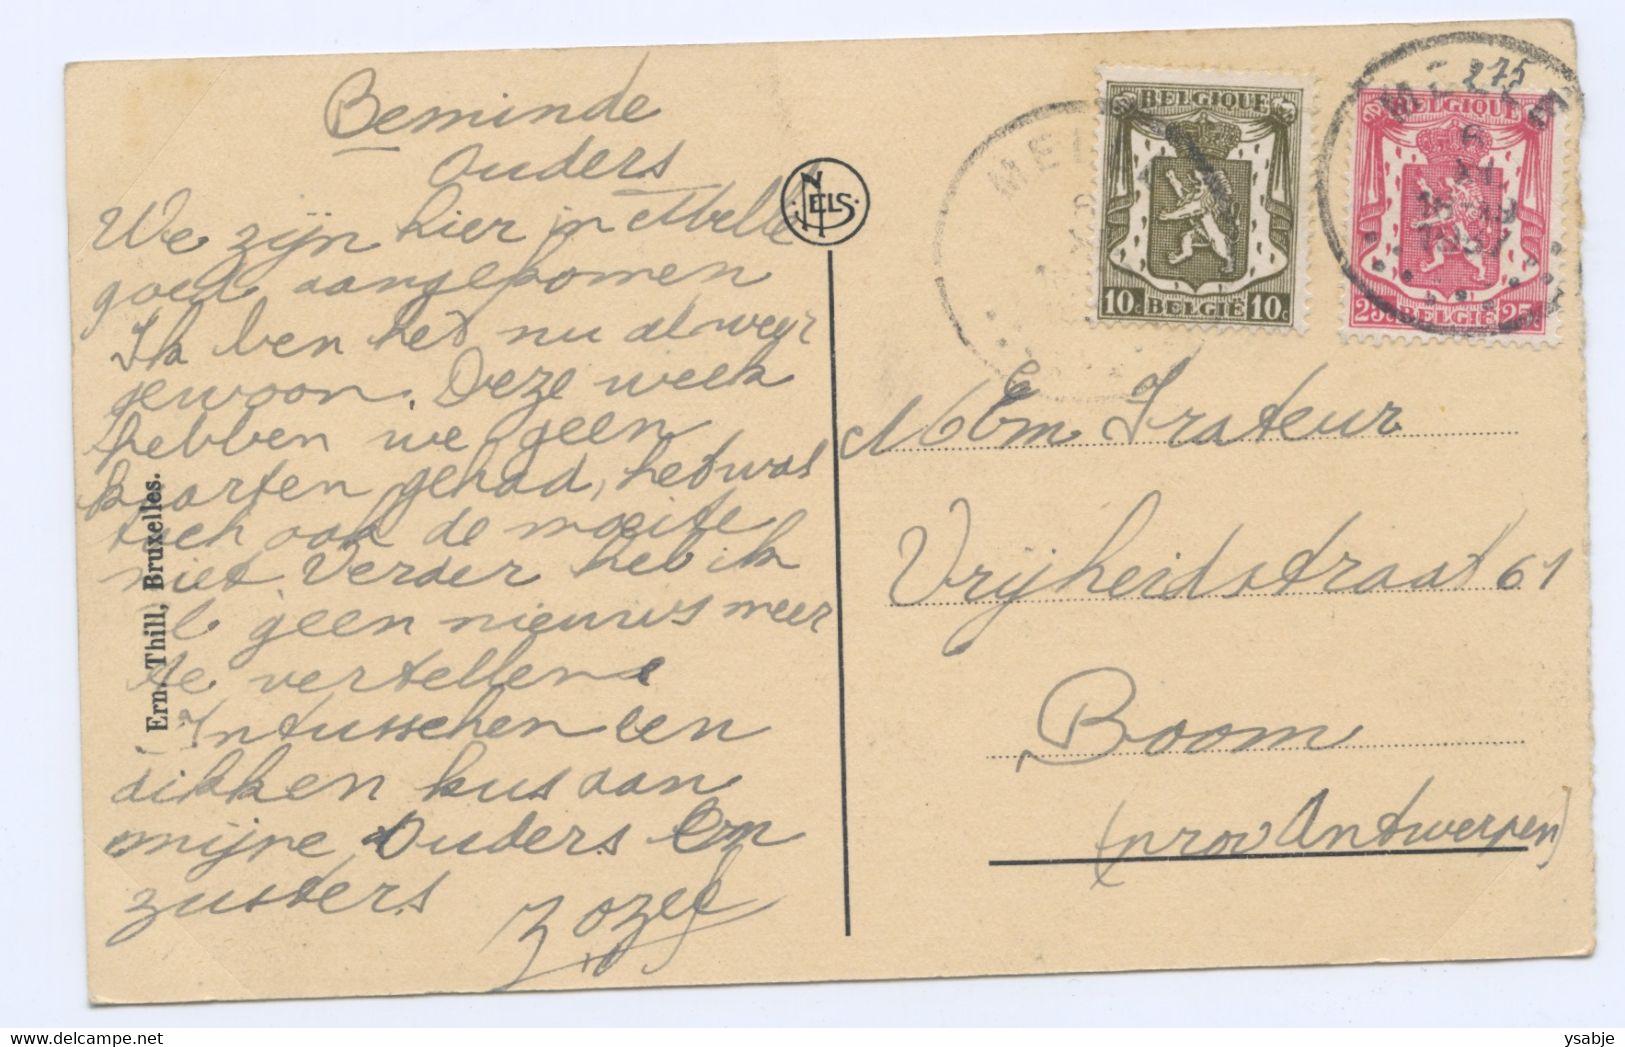 Beminde
Ouders
We zijn hier in Melle
goed aangekomen
Ik ben het nu al weer
gewoon. Deze week
hebben we geen
kaarten gehad, het was
toch ook de moeite
niet. Verder heb ik
geen nieuws meer
te vertellen
Intusschen een
dikken kus aan
mijne Ouders en
zusters
Jozef
Ern. Thill, Bruxelles.
NELS
BELGIQUE
10c BELGIE 10c
BELGIQUE
25c BELGIE 25c
MELLE
275
6
1937
Em Trateur
Vrijheidstraat 61
Boom
(prov Antwerpen)
ysabje